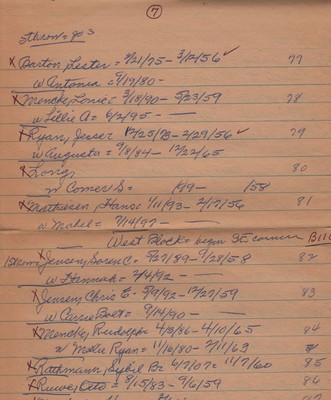 7
3
x Barton, Lester = 9/21/75 - 3/12/56 ✓ 77
w Antonia = 9/19/80 -
x Mencke, Louie = 3/18/90 - 5/23/59 78
w Lillie A = 6/2/95 -
x Ryan, Jesse 12/25/73 - 2/29/56 ✓ 79
w Augusta = 9/8/84 - 12/22/65
x Long, 80
w Comer S = 1/49 - 1/58
x Mathiesen Hans = 1/11/93 - 2/17/56 81
w Mabel = 7/14/97 -
West Block = begin SE corner B110
x Jensen, Soren C. = 9/27/89 - 9/28/58 82
w Hannah = 2/4/92 -
x Jensen, Chris E - 5/9/92 - 12/27/59 83
w = 9/14/90 -
x Mencke, Rudolph 4/5/86 - 4/10/65 84
w Ryan = 11/16/80 - 2/11/63
x Rathmann, Sybil B = 4/7/07 = 11/7/60 85
x Ruwe, Otto = 8/15/83 - 9/6/59 86